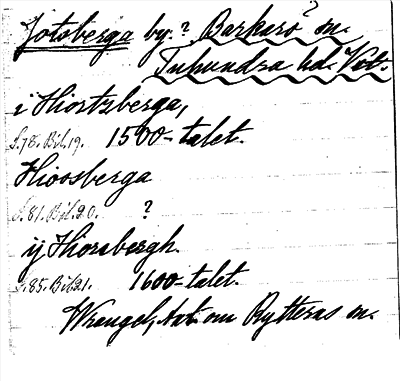 Jotsberga by. ? Barkarö ? sn.
Tuhundra hd. Vstm.
i Hiortzberga,
S. 78. Bil. 19. 1500-talet.
Hiorsberga
S. 81. Bil. 20. ?
ij Hiorsbergh.
S. 85. Bil. 21. 1600-talet.
Wrangel, Ant. om Rytterns sn.